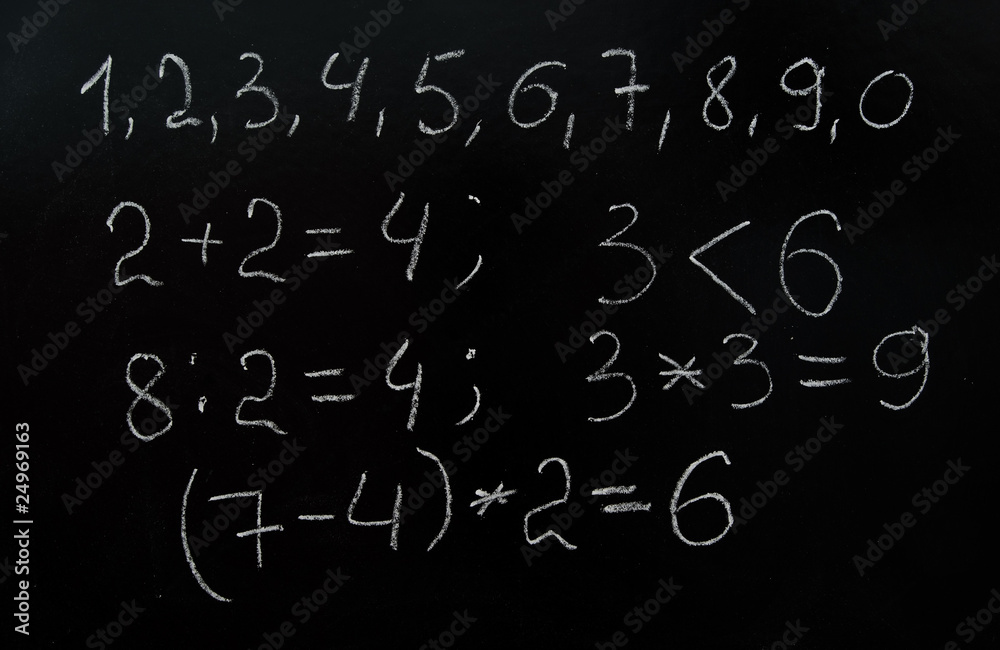 1, 2, 3, 4, 5, 6, 7, 8, 9, 0
2+2=4; 3<6
8:2=4; 3*3=9
(7-4)*2=6
Adobe Stock | #24969163